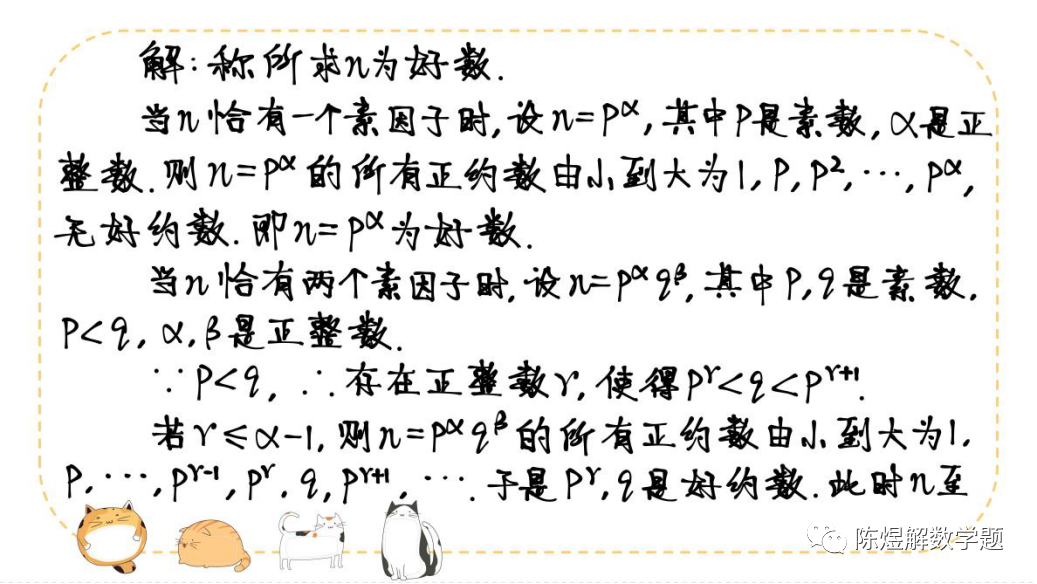 解:称所求n为好数.
当n恰有一个素因子时,设n=p^α,其中p是素数,α是正
整数.则n=p^α的所有正约数由小到大为1,p,p²,⋯,p^α,
无好约数.即n=p^α为好数.
当n恰有两个素因子时,设n=p^α q^β,其中p,q是素数,
p<q,α,β是正整数.
∵p<q,∴存在正整数r,使得p^r<q<p^{r+1}.
若r≤α-1,则n=p^α q^β的所有正约数由小到大为1,
p,⋯,p^{r-1},p^r,q,p^{r+1},⋯.于是p^r,q是好约数.此时n至
陈煜解数学题